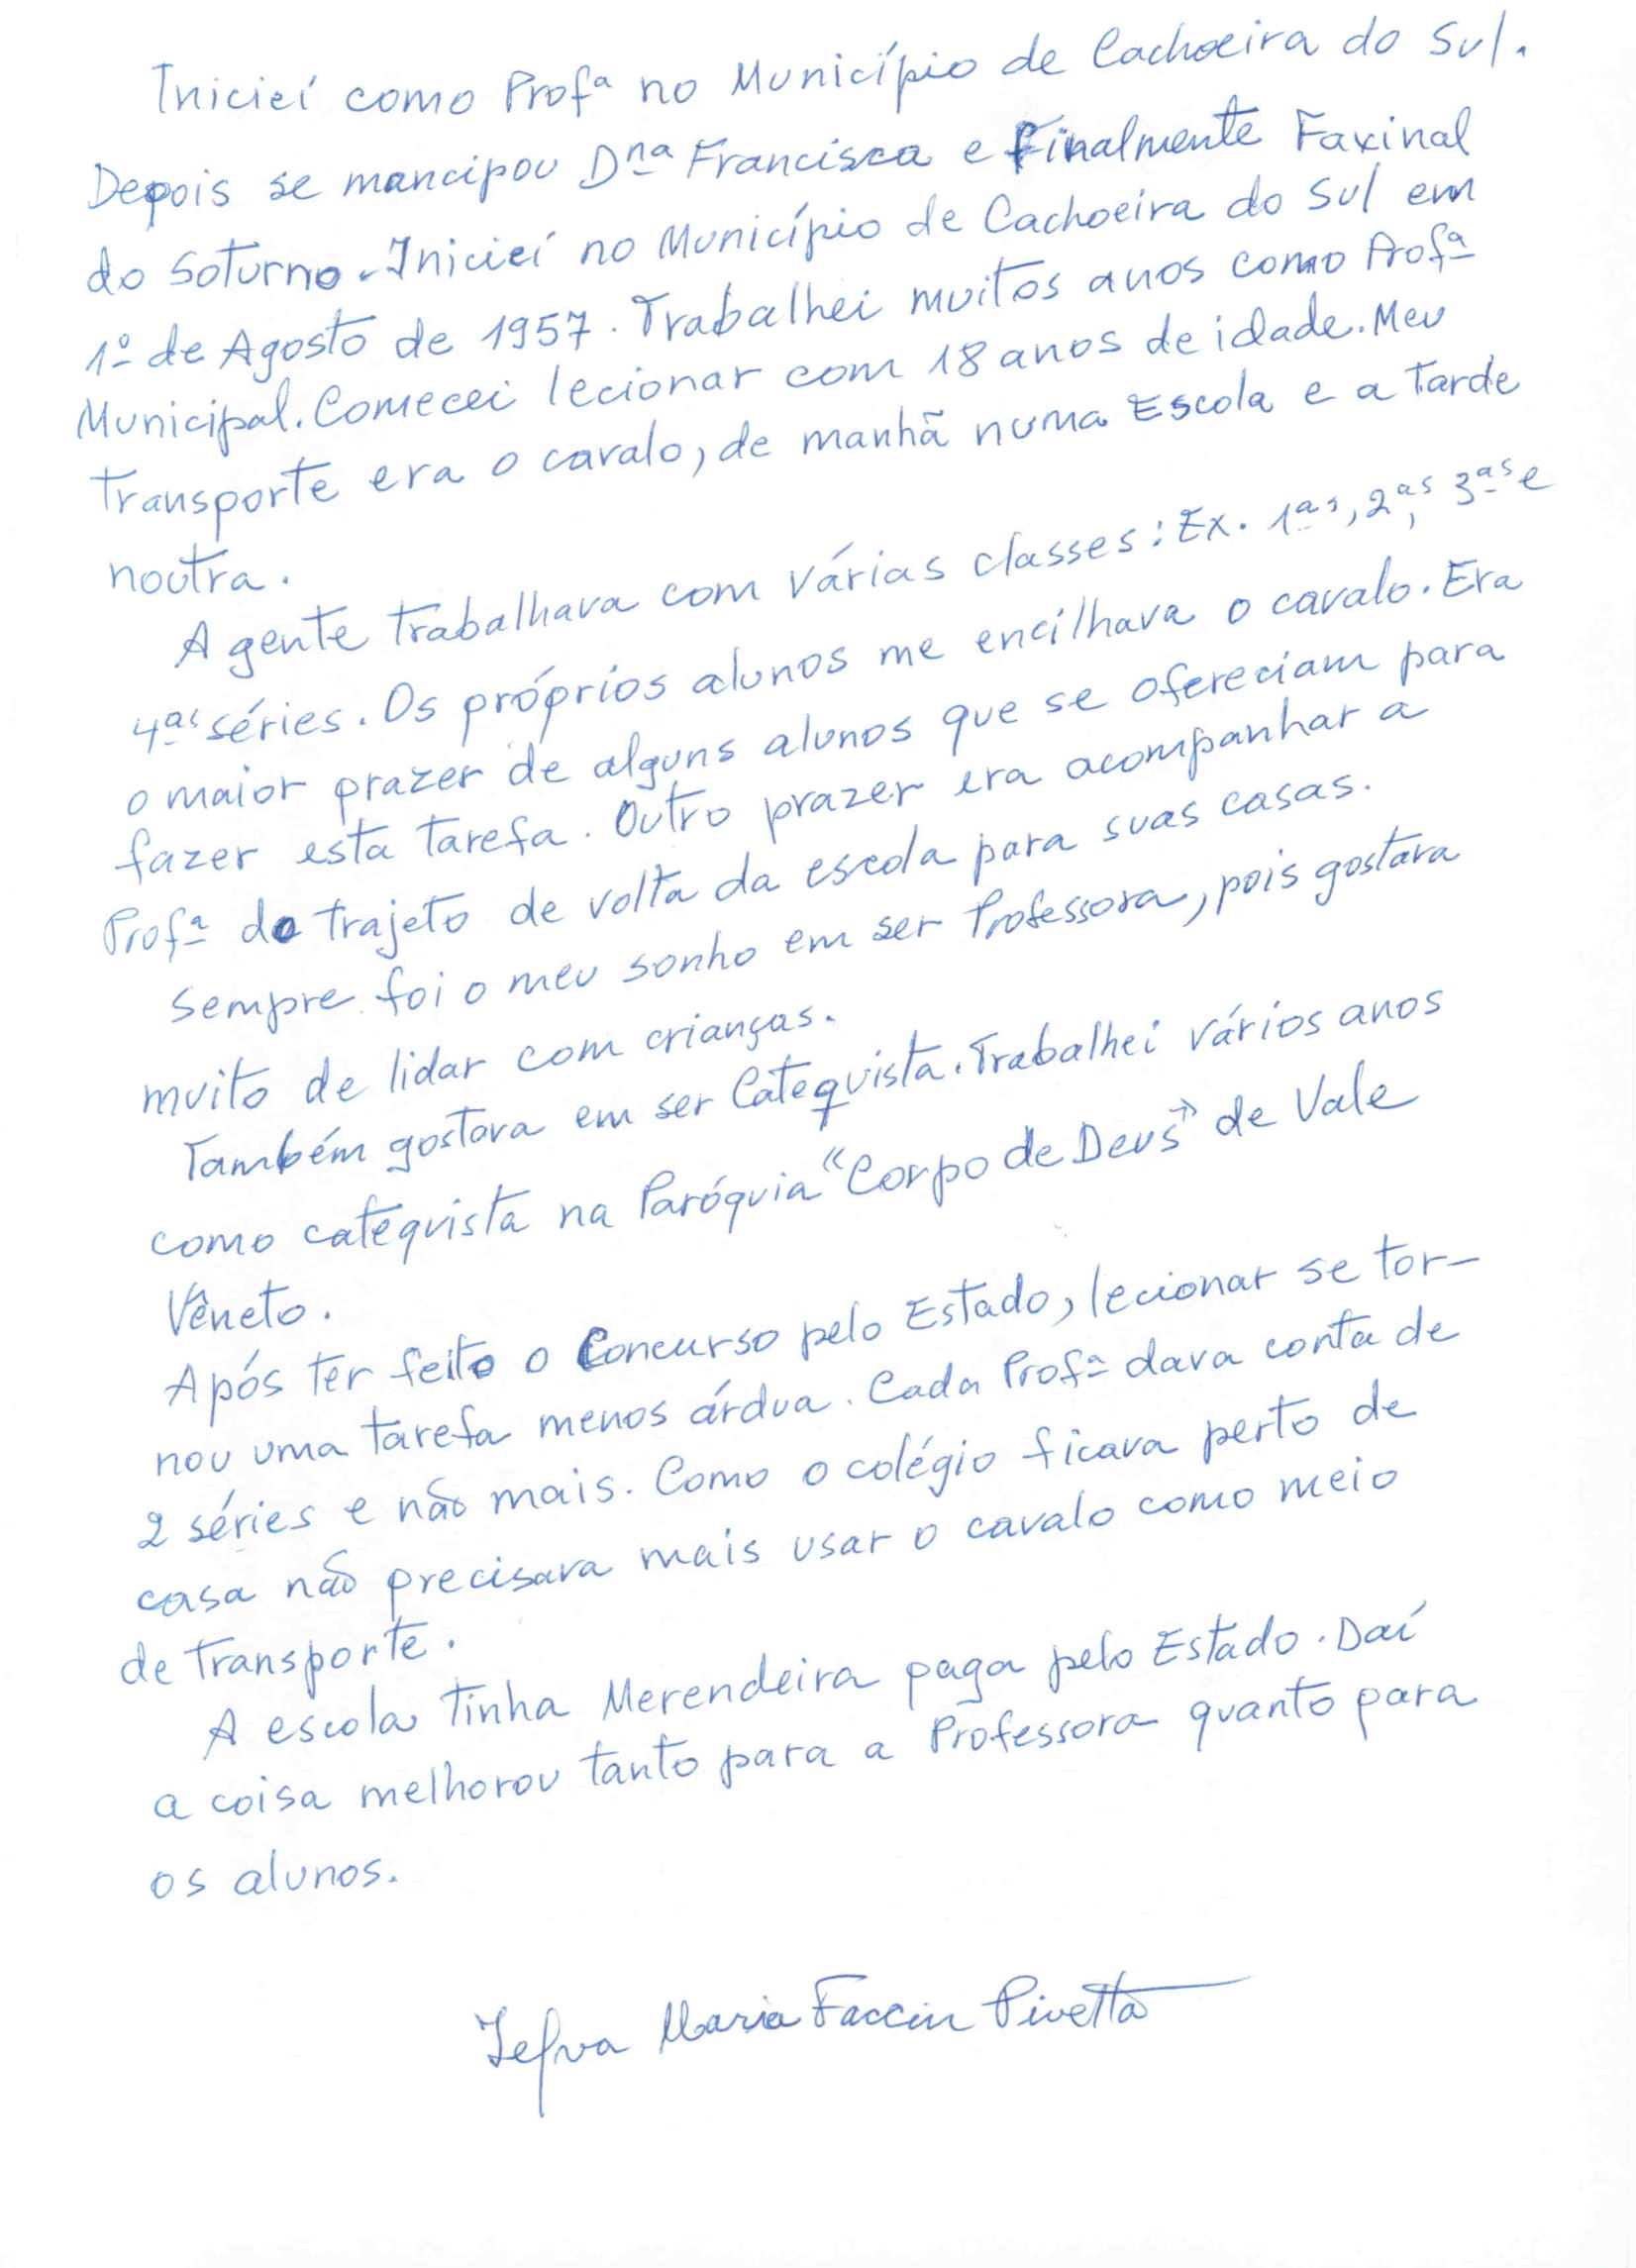 Iniciei como Profª no Município de Cachoeira do Sul.
Depois se mancipou Dna Francisca e Finalmente Faxinal
do Soturno. Iniciei no Município de Cachoeira do Sul em
1º de Agosto de 1957. Trabalhei muitos anos como Profª
Municipal. Comecei lecionar com 18 anos de idade. Meu
transporte era o cavalo, de manhã numa Escola e a tarde
noutra.
A gente trabalhava com várias classes: Ex. 1ªs, 2ªs, 3ªs e
4ªs séries. Os próprios alunos me encilhava o cavalo. Era
o maior prazer de alguns alunos que se ofereciam para
fazer esta tarefa. Outro prazer era acompanhar a
Profª do trajeto de volta da escola para suas casas.
Sempre foi o meu sonho em ser Professora, pois gostava
muito de lidar com crianças.
Também gostava em ser Catequista. Trabalhei vários anos
como catequista na Paróquia "Corpo de Deus" de Vale
Vêneto.
Após ter feito o Concurso pelo Estado, lecionar se tor-
nou uma tarefa menos árdua. Cada Profª dava conta de
2 séries e não mais. Como o colégio ficava perto de
casa não precisava mais usar o cavalo como meio
de transporte.
A escola tinha Merendeira paga pelo Estado. Daí
a coisa melhorou tanto para a Professora quanto para
os alunos.
Maria Faccin Pivetta